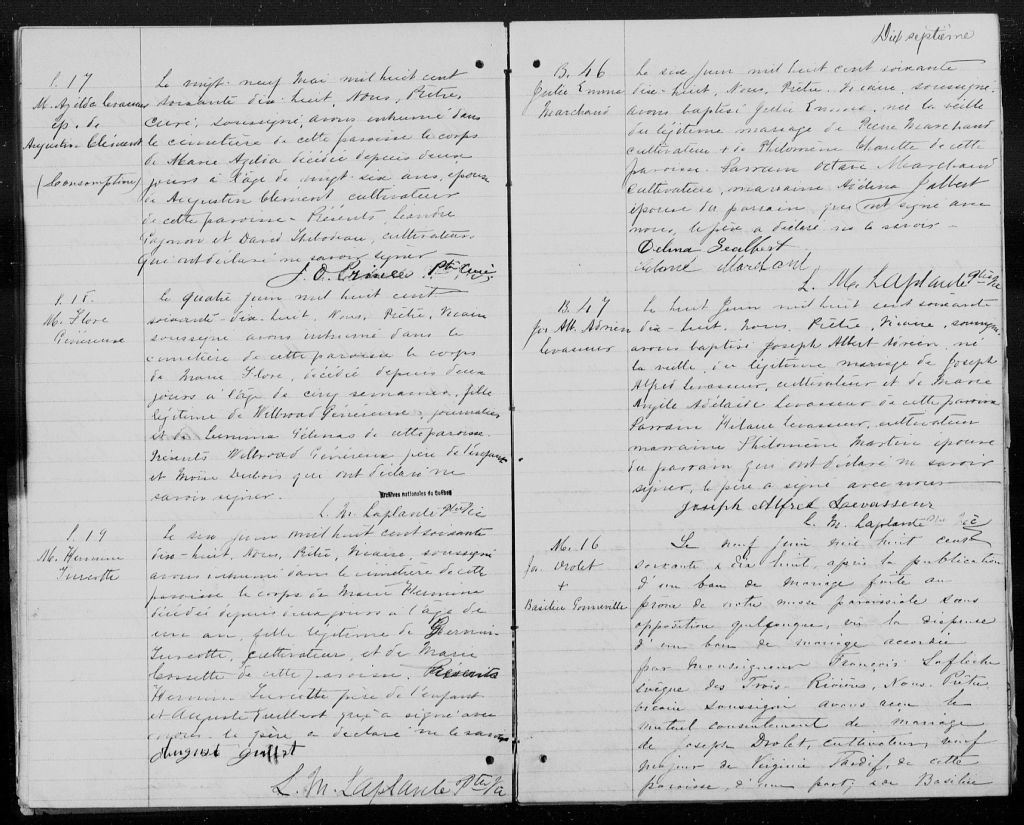 S. 17
M. Azelda Levasseur
ép. de
Augustin Clément
(Consomption)
Le vingt-neuf Mai mil huit cent
soixante dix-huit, Nous, Prêtre,
Curé, soussigné, avons inhumé dans
le cimetière de cette paroisse le corps
de Marie Azelda décédée depuis deux
jours à l'âge de vingt-six ans, épouse
de Augustin Clément cultivateur
de cette paroisse. Présents Léandre
Gagnon et David Thibodeau, cultivateurs
qui ont déclaré ne savoir signer
J. O. Prince Ptre Curé
S. 18
M. Flore
Généreuse
Le quatre juin mil huit cent
soixante-dix-huit, Nous, Prêtre, Vicaire
soussigné avons inhumé dans le
cimetière de cette paroisse le corps
de Marie Flore, décédée depuis deux
jours à l'âge de cinq semaines, fille
légitime de Wilbrod Généreuse, journalier
et de Emma Gélinas de cette paroisse.
Présents Wilbrod Généreux père de l'enfant
et Moïse Dubois qui ont déclaré ne
savoir signer.
Archives nationales du Québec
L. M. Laplante Ptre Vic
S. 19
M. Hermine
Turcotte
Le six juin mil huit cent soixante
dix-huit, Nous, Prêtre, Vicaire, soussigné
avons inhumé dans le cimetière de cette
paroisse le corps de Marie Hermine
décédée depuis deux jours à l'âge de
un an, fille légitime de
Turcotte, cultivateur, et de Marie
de cette paroisse. Présents
Turcotte père de l'enfant
et Auguste qui a signé avec
nous. le père a déclaré ne le savoir
L. M. Laplante Ptre Vic
Dix septième
B. 46
Julie Emma
Marchand
Le six Juin mil huit cent soixante
dix-huit, Nous, Prêtre Vicaire, soussigné
avons baptisé Julie Emma, née la veille
du légitime mariage de Pierre Marchand
cultivateur & de Philomène Charette de cette
paroisse. Parrain Octave Marchand
cultivateur, marraine Adélina Jalbert
épouse du parrain, qui ont signé avec
nous, le père a déclaré ne le savoir
Delina Gealbert
Marchand
L. M. Laplante Ptre Vic
B. 47
Jos. Alb. Adrien
Levasseur
Le huit Juin mil huit cent soixante
dix-huit, Nous, Prêtre, Vicaire, soussigné
avons baptisé Joseph Albert Adrien, né
la veille, du légitime mariage de Joseph
Alfred Levasseur, cultivateur et de Marie
Angèle Adélaïde Levasseur de cette paroisse
Parrain Hilaire Levasseur, cultivateur
marraine Philomène Martin épouse
du parrain qui ont déclaré ne savoir
signer, le père a signé avec nous
Joseph Alfred Levasseur
L. M. Laplante Ptre Vic
M. 16
Jos. Drolet
+
Basilice Bonneville
Le neuf juin mil huit cent
soixante & dix huit, après la publication
d'un ban de mariage faite au
prône de notre messe paroissiale sans
opposition quelconque, vu la dispense
d'un ban de mariage accordée
par Monseigneur François Laflèche
évêque des Trois-Rivières, Nous Prêtre
vicaire soussigné avons reçu le
mutuel consentement de mariage
de Joseph Drolet, cultivateur, veuf
majeur de Virginie Tardif, de cette
paroisse, d'une part; & de Basilice